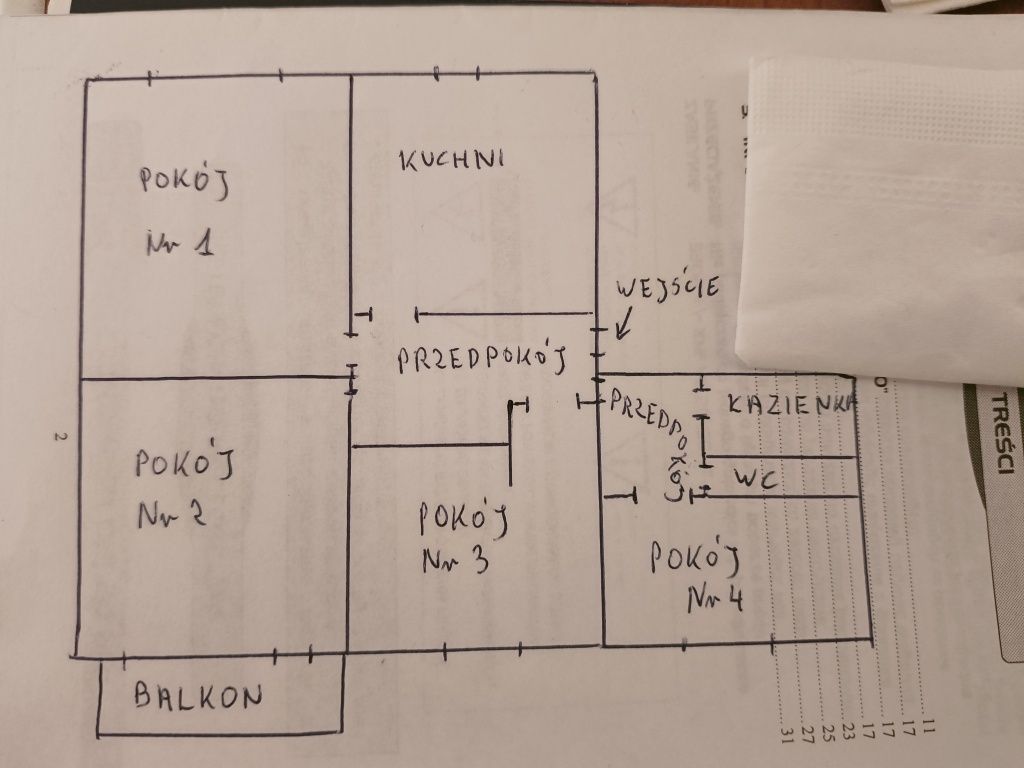 POKÓJ
Nr 1
KUCHNI
WEJŚCIE
PRZEDPOKÓJ
PRZEDPOKÓJ
ŁAZIENKA
WC
POKÓJ
Nr 2
POKÓJ
Nr 3
POKÓJ
Nr 4
BALKON
2
TREŚCI
11
17
17
17
23
25
27
31